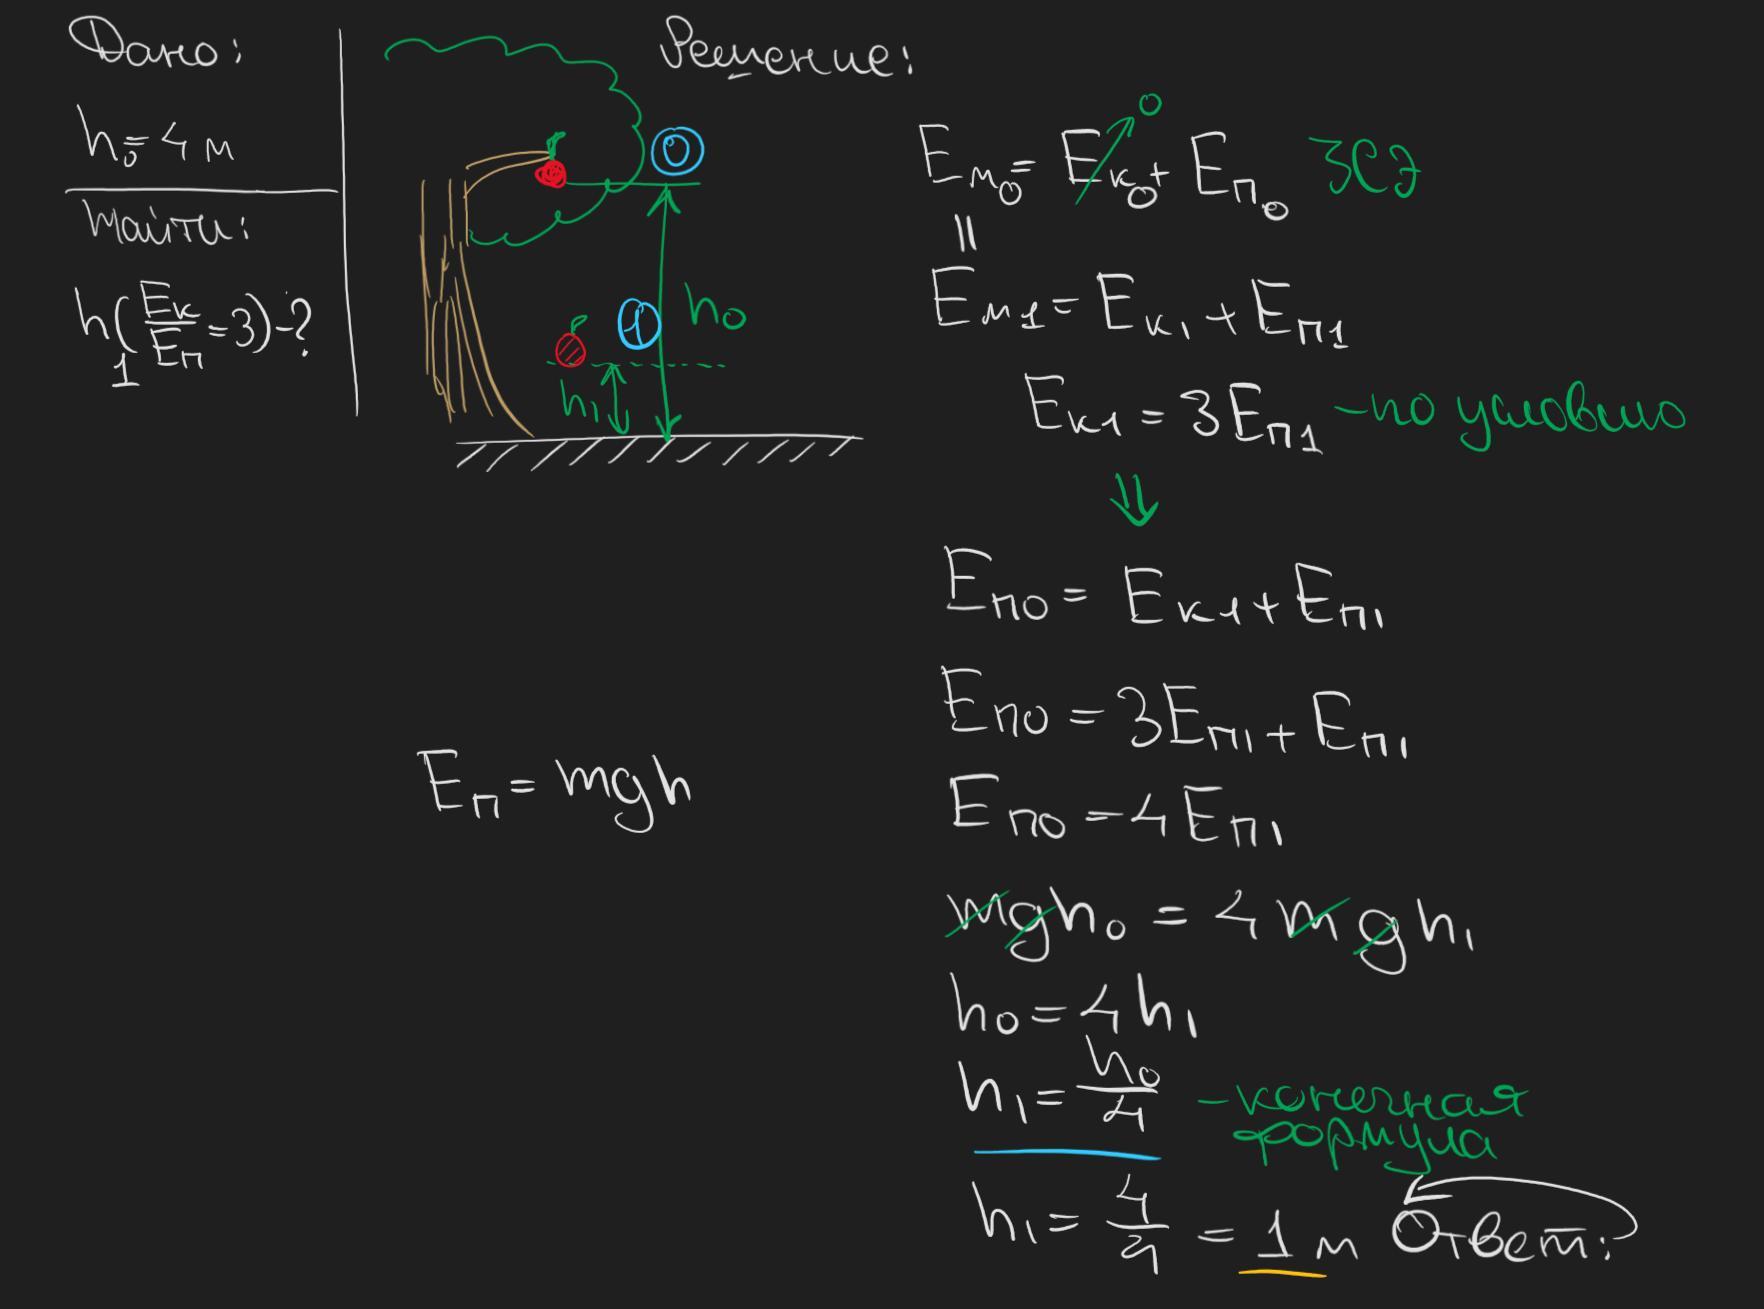 Дано:
h₀ = 4 м
Найти:
h₁(Eк/Eп = 3) - ?
Решение:
0
1
h₀
h₁
Eм₀ = Eк₀ + Eп₀ ЗСЭ
0
=
Eм1 = Eк1 + Eп1
Eк1 = 3Eп1 - по условию
⇓
Eп0 = Eк1 + Eп1
Eп0 = 3Eп1 + Eп1
Eп = mgh
Eп0 = 4Eп1
mgh₀ = 4mgh₁
h₀ = 4h₁
h₁ = h₀/4 - конечная
формула
h₁ = 4/4 = 1 м Ответ: